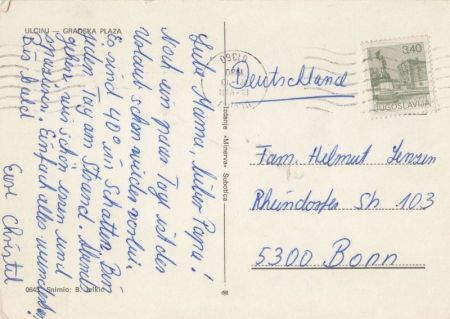 ULCINJ — GRADSKA PLAZA
Liebe Mama, lieber Papa!
Noch ein paar Tage ist der
Urlaub schon wieder vorbei.
Es sind 40° im Schatten. Bin
jeden Tag am Strand. Abends
gehen wir schön essen und
spazieren. Einfach alles wunderbar.
Bis bald
Eure Christel
0645 Snimio: B. Jelkić
Izdanje »Minerva« Subotica
Deutschland
3,40
JUGOSLAVIJA
Fam. Helmut Jenzen
Rheindorfer Str. 103
5300 Bonn